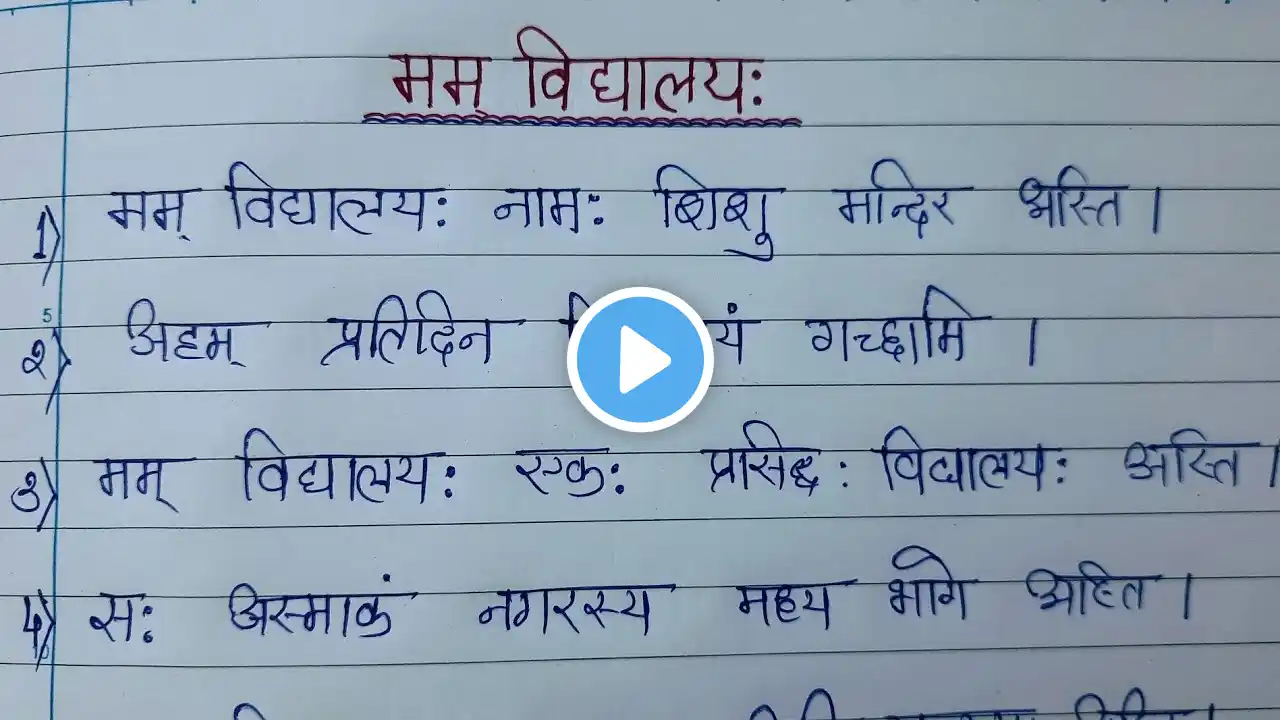 मम् विद्यालयः
1) मम् विद्यालयः नामः शिशु मन्दिर अस्ति ।
5
2) अहम् प्रतिदिन यं गच्छामि ।
3) मम् विद्यालयः एकः प्रसिद्धः विद्यालयः अस्ति ।
4) सः अस्माकं नगरस्य मध्य भागे अस्ति ।